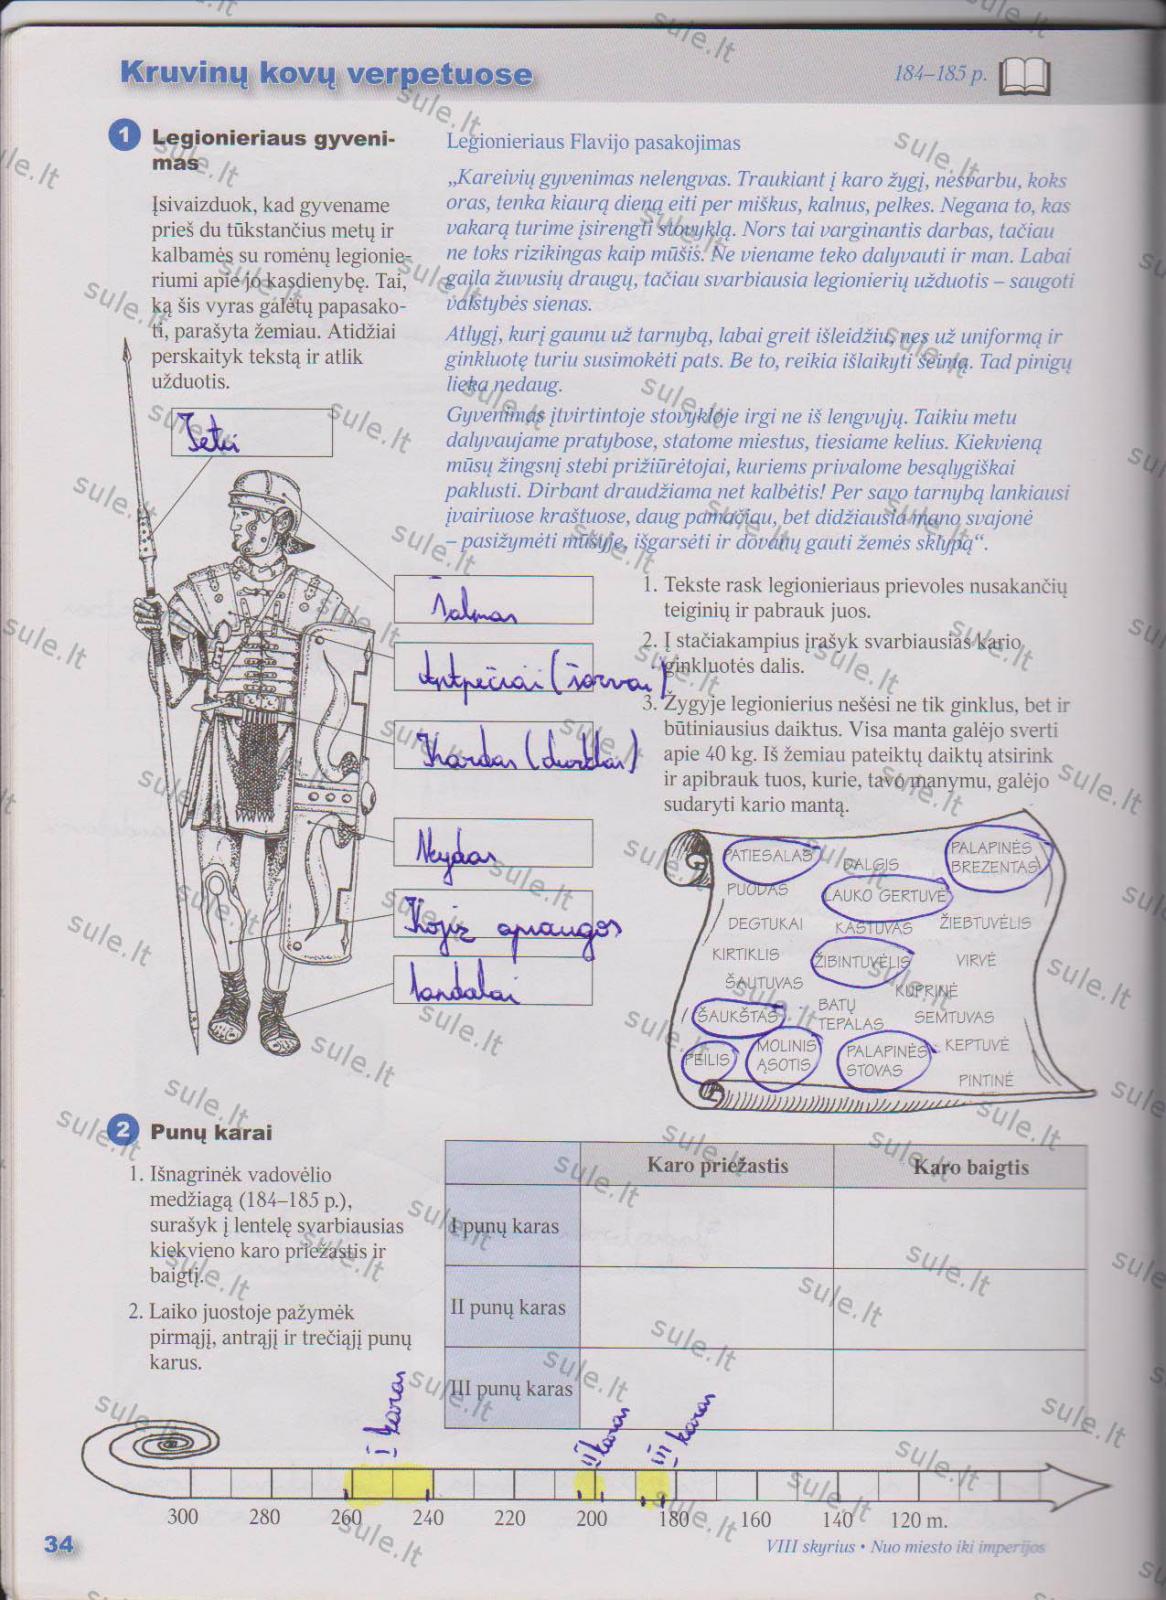 Kruvinų kovų verpetuose
184–185 p.
1 Legionieriaus gyveni-
mas
Įsivaizduok, kad gyvename
prieš du tūkstančius metų ir
kalbamės su romėnų legionie-
riumi apie jo kasdienybę. Tai,
ką šis vyras galėtų papasako-
ti, parašyta žemiau. Atidžiai
perskaityk tekstą ir atlik
užduotis.
Legionieriaus Flavijo pasakojimas
„Kareivių gyvenimas nelengvas. Traukiant į karo žygį, nesvarbu, koks
oras, tenka kiaurą dieną eiti per miškus, kalnus, pelkes. Negana to, kas
vakarą turime įsirengti stovyklą. Nors tai varginantis darbas, tačiau
ne toks rizikingas kaip mūšis. Ne viename teko dalyvauti ir man. Labai
gaila žuvusių draugų, tačiau svarbiausia legionierių užduotis – saugoti
valstybės sienas.
Atlygį, kurį gaunu už tarnybą, labai greit išleidžiu, nes už uniformą ir
ginkluotę turiu susimokėti pats. Be to, reikia išlaikyti šeimą. Tad pinigų
lieka nedaug.
Gyvenimas įtvirtintoje stovykloje irgi ne iš lengvųjų. Taikiu metu
dalyvaujame pratybose, statome miestus, tiesiame kelius. Kiekvieną
mūsų žingsnį stebi prižiūrėtojai, kuriems privalome besąlygiškai
paklusti. Dirbant draudžiama net kalbėtis! Per savo tarnybą lankiausi
įvairiuose kraštuose, daug pamačiau, bet didžiausia mano svajonė
– pasižymėti mūšyje, išgarsėti ir dovanų gauti žemės sklypą“.
Šalmas
Antpečiai (šarvai)
Kardas (durklas)
Skydas
Kojų apraugos
Sandalai
1. Tekste rask legionieriaus prievoles nusakančių
teiginių ir pabrauk juos.
2. Į stačiakampius įrašyk svarbiausias kario
ginkluotės dalis.
3. Žygyje legionierius nešėsi ne tik ginklus, bet ir
būtiniausius daiktus. Visa manta galėjo sverti
apie 40 kg. Iš žemiau pateiktų daiktų atsirink
ir apibrauk tuos, kurie, tavo manymu, galėjo
sudaryti kario mantą.
PATIESALAS DALGIS PALAPINĖS
BREZENTAS
PUODAS LAUKO GERTUVĖ
DEGTUKAI KASTUVAS ŽIEBTUVĖLIS
KIRTIKLIS ŽIBINTUVĖLIS VIRVĖ
ŠAUTUVAS KUPRINĖ
ŠAUKŠTAS BATŲ
TEPALAS SEMTUVAS
PEILIS MOLINIS
ĄSOTIS PALAPINĖS
STOVAS KEPTUVĖ
PINTINĖ
2 Punų karai
1. Išnagrinėk vadovėlio
medžiagą (184–185 p.),
surašyk į lentelę svarbiausias
kiekvieno karo priežastis ir
baigtį.
2. Laiko juostoje pažymėk
pirmąjį, antrąjį ir trečiąjį punų
karus.
Karo priežastis Karo baigtis
I punų karas
II punų karas
III punų karas
I karas II karas III karas
300 280 260 240 220 200 180 160 140 120 m.
34
VIII skyrius • Nuo miesto iki imperijos
sule.lt